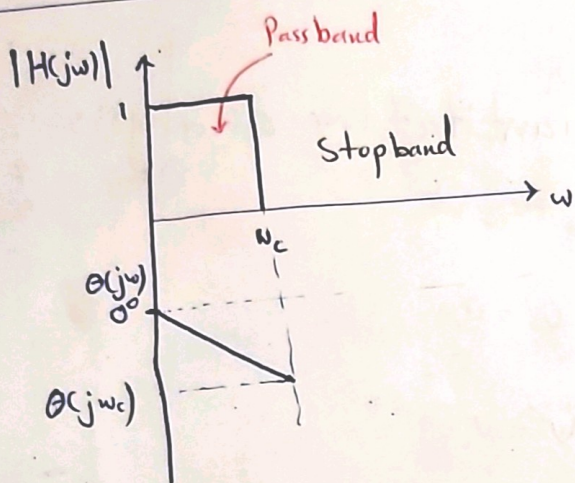 Passband
|H(jω)|
1
Stopband
ω
ωc
θ(jω)
0°
θ(jωc)